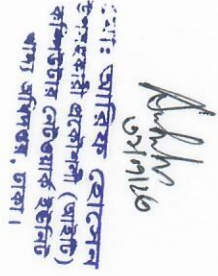 মোঃ আরিফ হোসেন
সহকারী প্রকৌশলী (আইটি)
কম্পিউটার নেটওয়ার্ক ইউনিট
খাদ্য অধিদপ্তর, ঢাকা।